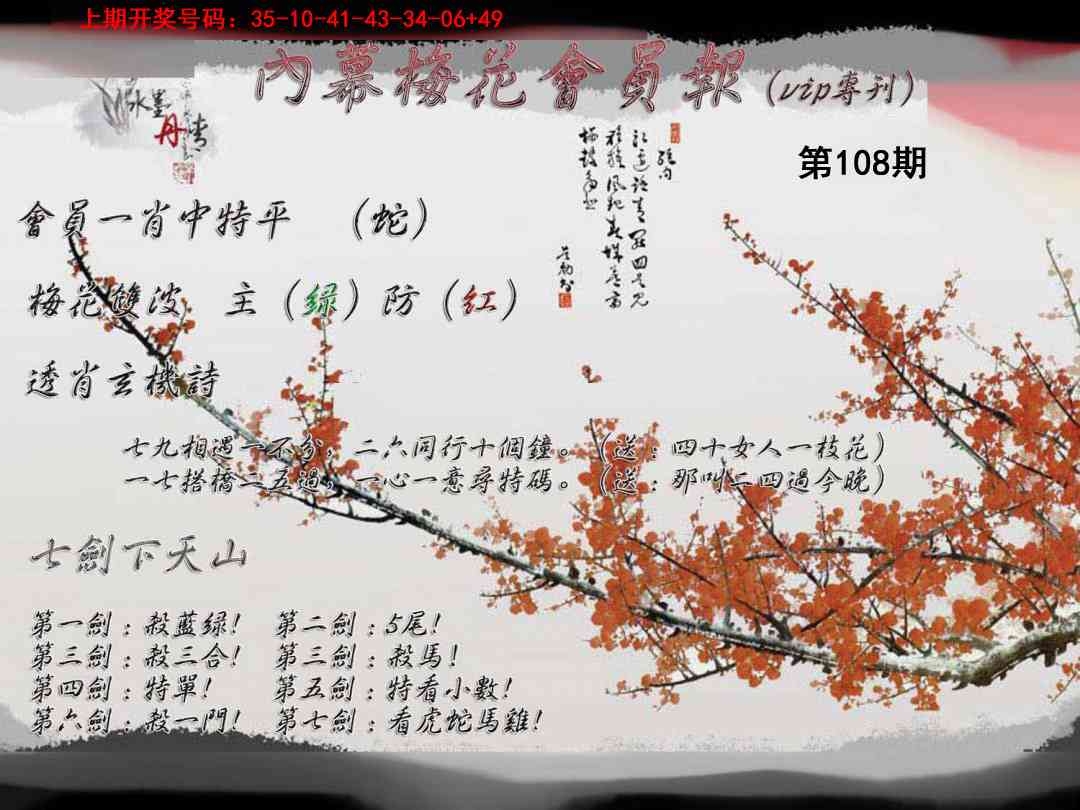 上期开奖号码：35-10-41-43-34-06+49
內幕梅花會員報（vip專刊）
水墨
丹青
第108期
會員一肖中特平 （蛇）
梅花雙波 主（綠）防（紅）
透肖玄機詩
七九相遇一不分，二六同行十個鐘。（送：四十女人一枝花）
一七搭橋二五過，一心一意尋特碼。（送：那叫二四過今晚）
七劍下天山
第一劍：殺藍绿！ 第二劍：5尾！
第三劍：殺三合！ 第三劍：殺馬！
第四劍：特單！ 第五劍：特看小數！
第六劍：殺一門！ 第七劍：看虎蛇馬雞！